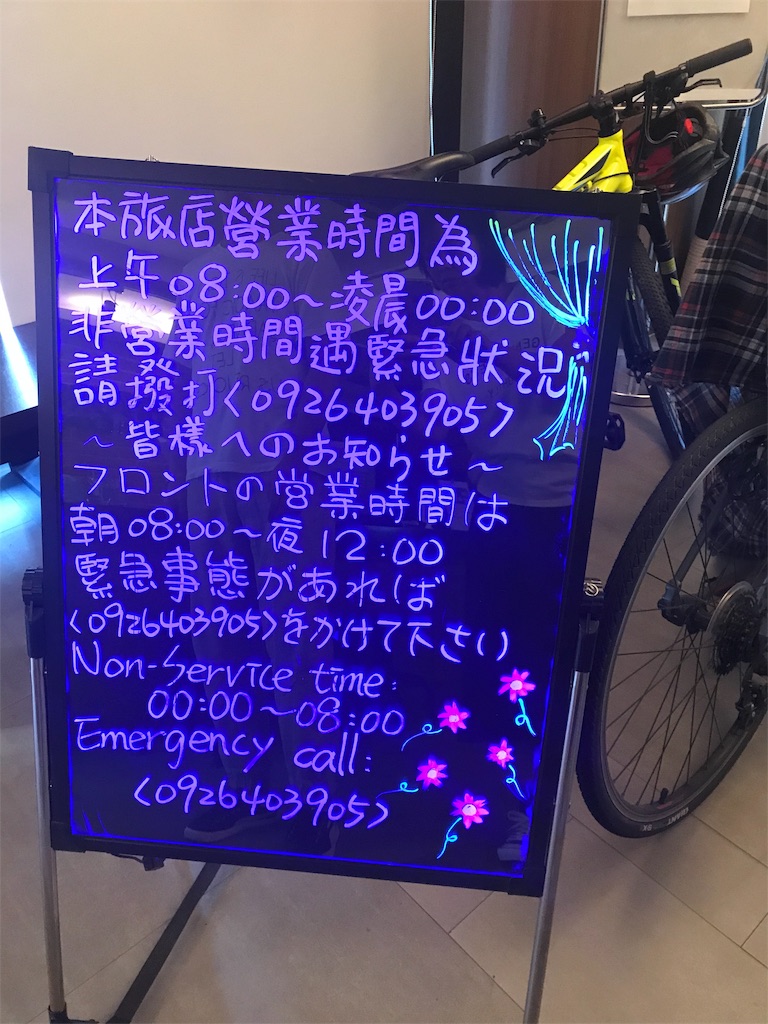 本旅店營業時間為
上午08:00～凌晨00:00
非營業時間遇緊急狀況
請撥打<0926403905>
～皆樣へのお知らせ～
フロントの営業時間は
朝08:00～夜12:00
緊急事態があれば
<0926403905>をかけて下さい
Non-Service time:
00:00～08:00
Emergency call:
<0926403905>
GIANT